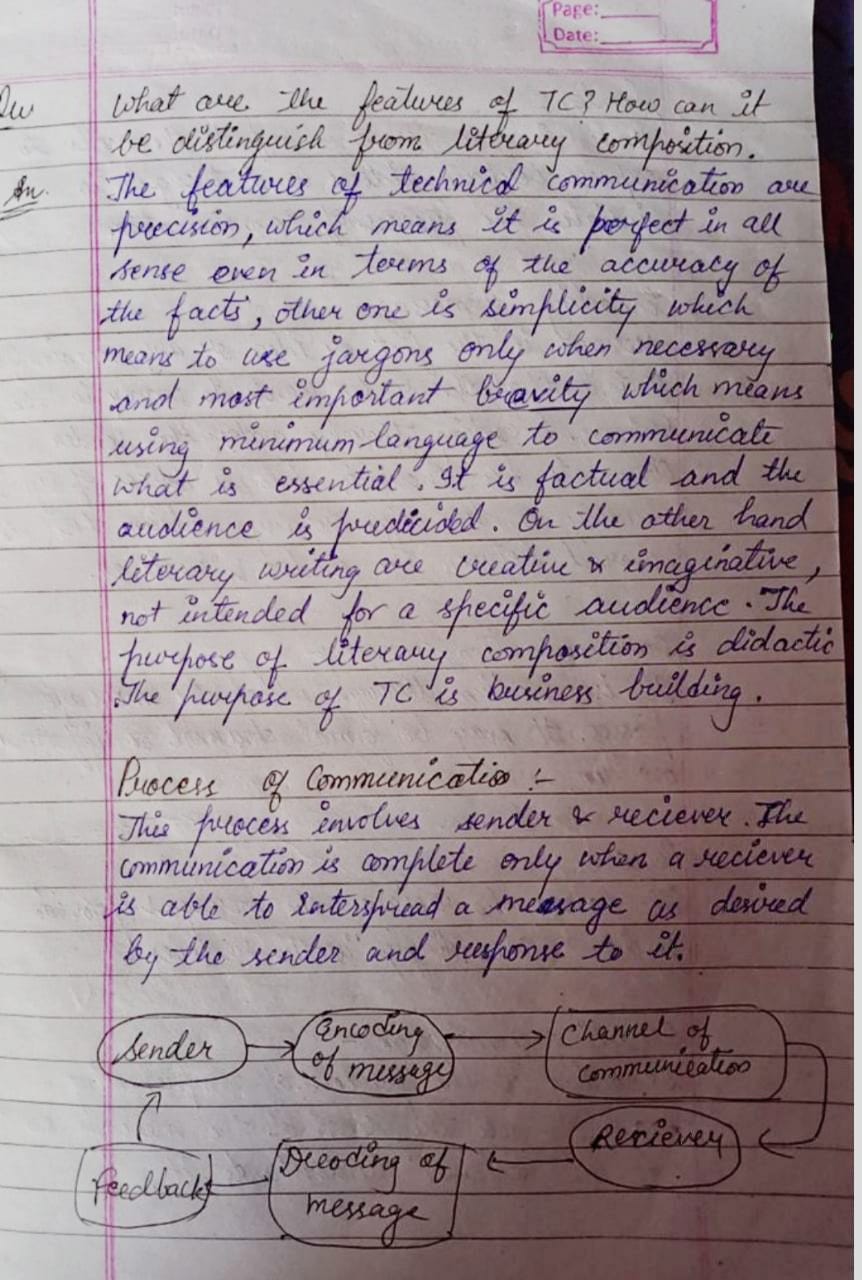 Page:
Date:
Qu What are the features of TC? How can it
be distinguish from literary composition.
An. The features of technical communication are
precision, which means it is perfect in all
sense even in terms of the accuracy of
the facts, other one is simplicity which
means to use jargons only when necessary
and most important bravity which means
using minimum language to communicate
what is essential. It is factual and the
audience is predicided. On the other hand
literary writing are creative & imaginative,
not intended for a specific audience. The
purpose of literary composition is didactic
.The purpose of TC is business building.
Process of Communication :-
This process involves sender & reciever. The
communication is complete only when a reciever
is able to interspread a message as desired
by the sender and response to it.
Sender
Encoding of message
Channel of communication
Reciever
Decoding of message
Feedback